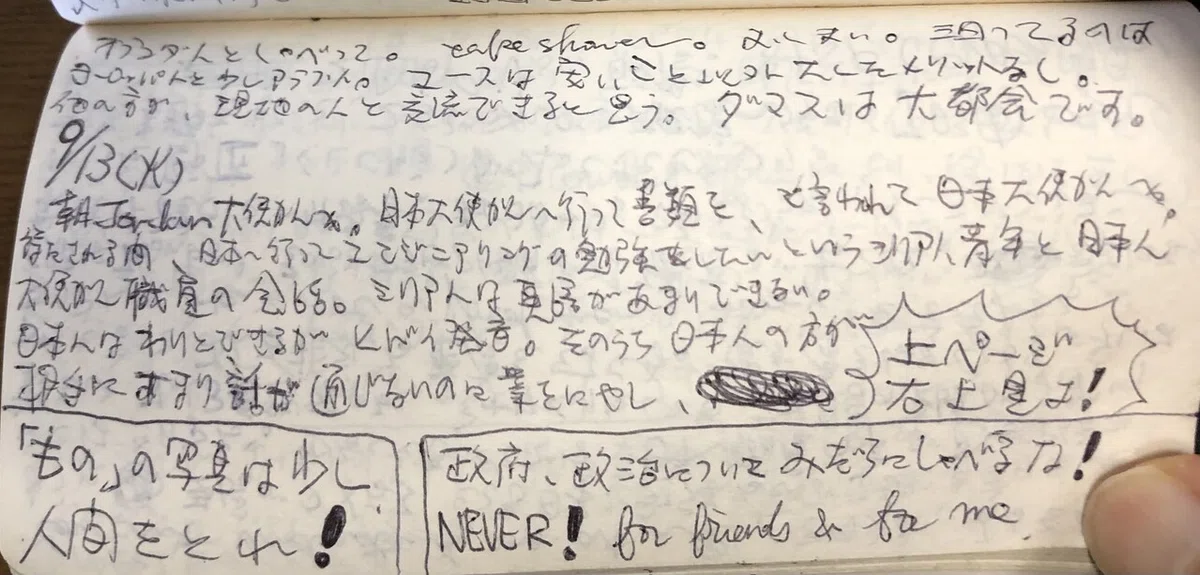 オランダ人としゃべって。take shower。よしよい。泊ってるのは
ヨーロッパ人と少しアラブ人。ユースは安いこと以外大したメリットなし。
他の方が、現地の人と交流できると思う。ダマスは大都会です。
9/13(火)
朝Jordan大使かんへ。日本大使かんへ行って書類を、と言われて日本大使かんへ。
待たされる間、日本へ行ってエンジニアリングの勉強をしたいというシリア人青年と日本人
大使かん職員の会話。シリア人は英語があまりできない。
日本人はわりとできるがヒドイ発音。そのうち日本人の方が
相手にあまり話が通じないのに業をにやし、
上ページ
右上見よ!
「もの」の写真は少し
人間をとれ!
政府、政治についてみだりにしゃべるな!
NEVER! for friends & for me